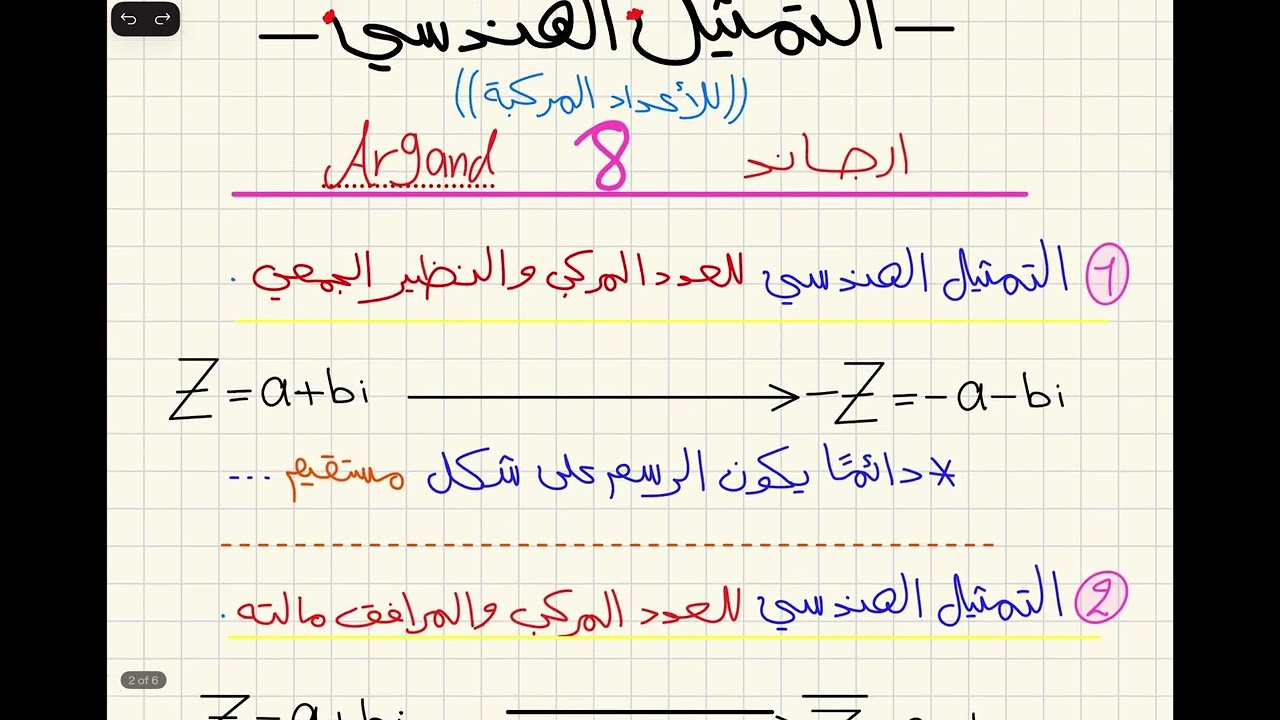 — التمثيل الهندسي —
((للأعداد المركبة))
ارجاند 8 Argand
1 التمثيل الهندسي للعدد المركب والنظير الجمعي .
Z = a + bi → -Z = - a - bi
* دائمًا يكون الرسم على شكل مستقيم ...
2 التمثيل الهندسي للعدد المركب والمرافق مالته .
Z = a + bi
2 of 6